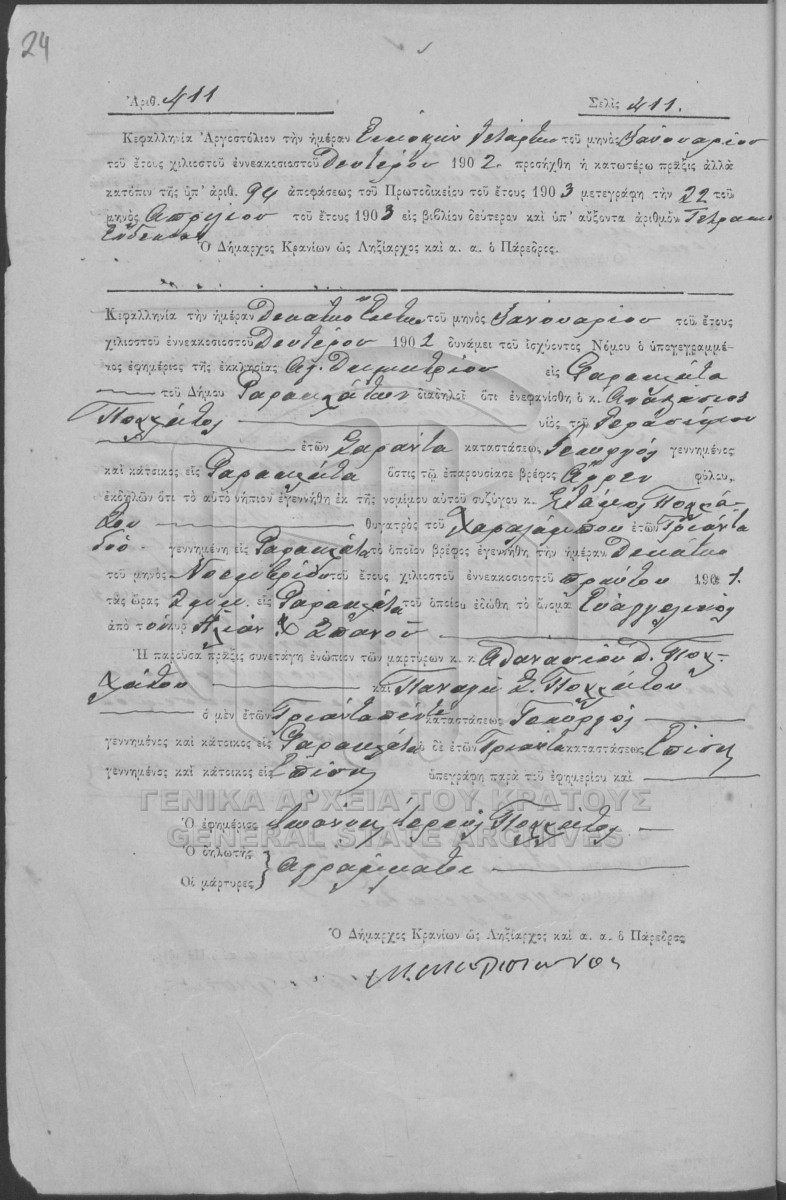 24
Ἀριθ. 411 Σελὶς 411.
Κεφαλληνία Ἀργοστόλιον τὴν ἡμέραν Εικοστήν τετάρτην τοῦ μηνὸς Ιανουαρίου
τοῦ ἔτους χιλιοστοῦ ἐννεακοσιοστοῦ Δευτέρου 1902. προσήχθη ἡ κατωτέρω πρᾶξις ἀλλὰ
κατόπιν τῆς ὑπ' ἀριθ. 94 ἀποφάσεως τοῦ Πρωτοδικείου τοῦ ἔτους 1903 μετεγράφη τὴν 22 τοῦ
μηνὸς Απριλίου τοῦ ἔτους 1903 εἰς βιβλίον δεύτερον καὶ ὑπ' αὔξοντα ἀριθμὸν
Ὁ Δήμαρχος Κρανίων ὡς Ληξίαρχος καὶ α. α. ὁ Πάρεδρος.
Κεφαλληνία τὴν ἡμέραν Δεκάτην Έκτην τοῦ μηνὸς Ιανουαρίου τοῦ ἔτους
χιλιοστοῦ ἐννεακοσιοστοῦ Δευτέρου 1902 δυνάμει τοῦ ἰσχύοντος Νόμου ὁ ὑπογεγραμμέ-
νος ἐφημέριος τῆς ἐκκλησίας Αγ. Δημητρίου εἰς Φαρακλάτα
τοῦ Δήμου Φαρακλάτων διαδηλοῖ ὅτι ἐνεφανίσθη ὁ κ. Αναστάσιος
Πολλάτος υἱὸς τοῦ Γερασίμου
ἐτῶν Σαράντα καταστάσεως Γεωργός γεννημένος
καὶ κάτοικος εἰς Φαρακλάτα ὅστις τῷ ἐπαρουσίασε βρέφος Άρρεν φύλου,
ἐκδηλῶν ὅτι τὸ αὐτὸ νήπιον ἐγεννήθη ἐκ τῆς νομίμου αὐτοῦ συζύγου κ. Στάμος Πολλά-
του θυγατρὸς τοῦ Χαραλάμπου ἐτῶν Τριάντα
δύο γεννημένη εἰς Φαρακλάτα τὸ ὁποῖον βρέφος ἐγεννήθη τὴν ἡμέραν Δεκάτην
τοῦ μηνὸς Νοεμβρίου τοῦ ἔτους χιλιοστοῦ ἐννεακοσιοστοῦ πρώτου 1901.
τὰς ὥρας 2 μ.μ. εἰς Φαρακλάτα τοῦ ὁποίου ἐδώθη τὸ ὄνομα Ευάγγελινός
ἀπὸ τὸν κυρ Ηλίαν Σπανού
Ἡ παροῦσα πρᾶξις συνετάγη ἐνώπιον τῶν μαρτύρων κ. κ. Αθανασίου Δ. Πολ-
λάτου καὶ Παναγή Σ. Πολλάτου
ὁ μὲν ἐτῶν Τριάνταπέντε καταστάσεως Γεωργός
γεννημένος καὶ κάτοικος εἰς Φαρακλάτα ὁ δὲ ἐτῶν Τριάντα καταστάσεως Επίσης
γεννημένος καὶ κάτοικος εἰς Επίσης ὑπεγράφη παρὰ τοῦ ἐφημερίου καὶ
ΓΕΝΙΚΑ ΑΡΧΕΙΑ ΤΟΥ ΚΡΑΤΟΥΣ
Ὁ ἐφημέριος Ιωάννης Ιερεύς Πολλάτος
GENERAL STATE ARCHIVES
Ὁ δηλωτὴς
Οἱ μάρτυρες } αγράμματοι
Ὁ Δήμαρχος Κρανίων ὡς Ληξίαρχος καὶ α. α. ὁ Πάρεδρος